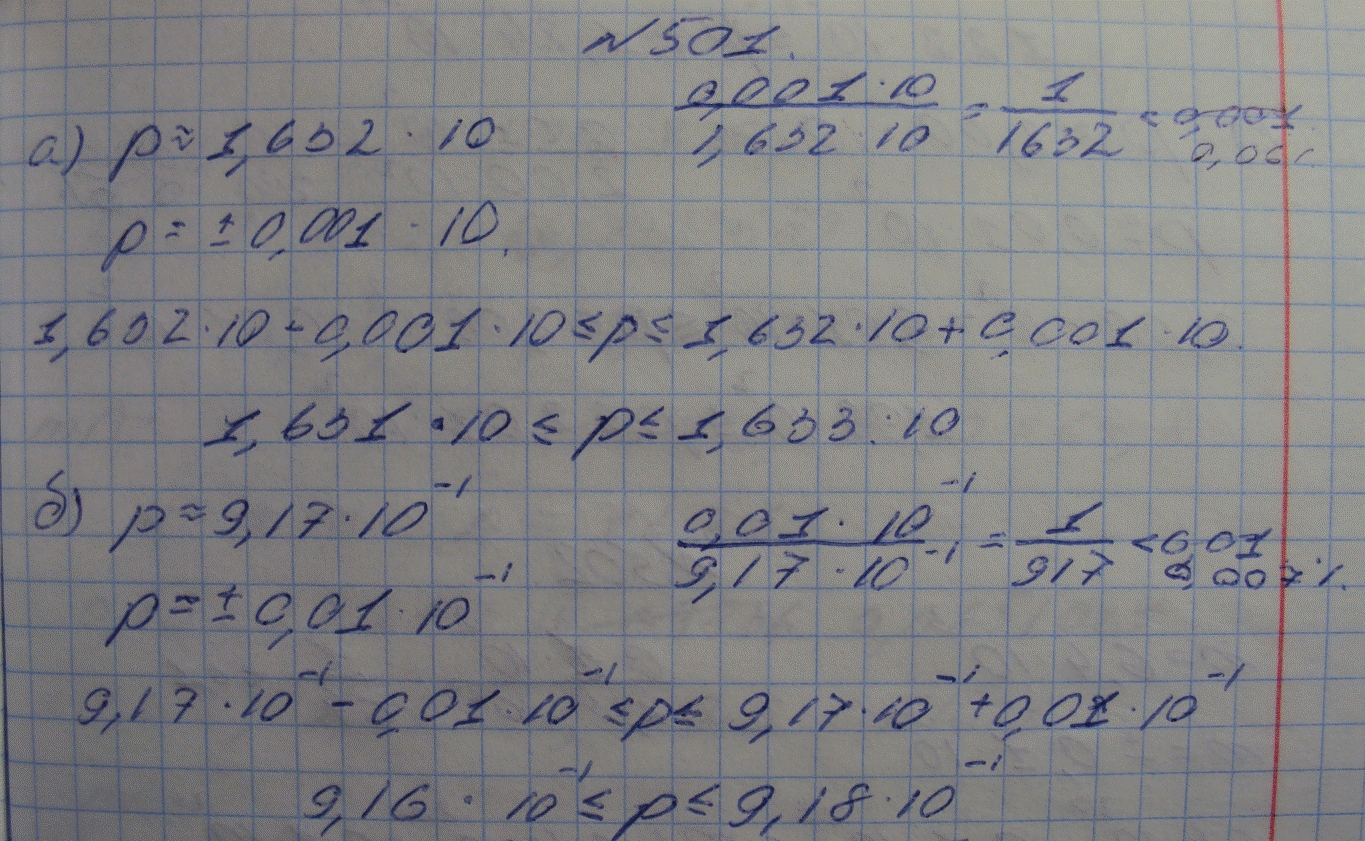 №501.
а) p≈1,632·10 (0,001·10)/(1,632·10) = 1/1632 < 0,001.
p = ±0,001·10.
1,632·10-0,001·10≤p≤1,632·10+0,001·10.
1,631·10≤p≤1,633·10
б) p≈9,17·10⁻¹ (0,01·10⁻¹)/(9,17·10⁻¹) = 1/917 <0,01
0,007%.
p=±0,01·10⁻¹
9,17·10⁻¹-0,01·10⁻¹≤p≤9,17·10⁻¹+0,01·10⁻¹
9,16·10⁻¹≤p≤9,18·10⁻¹